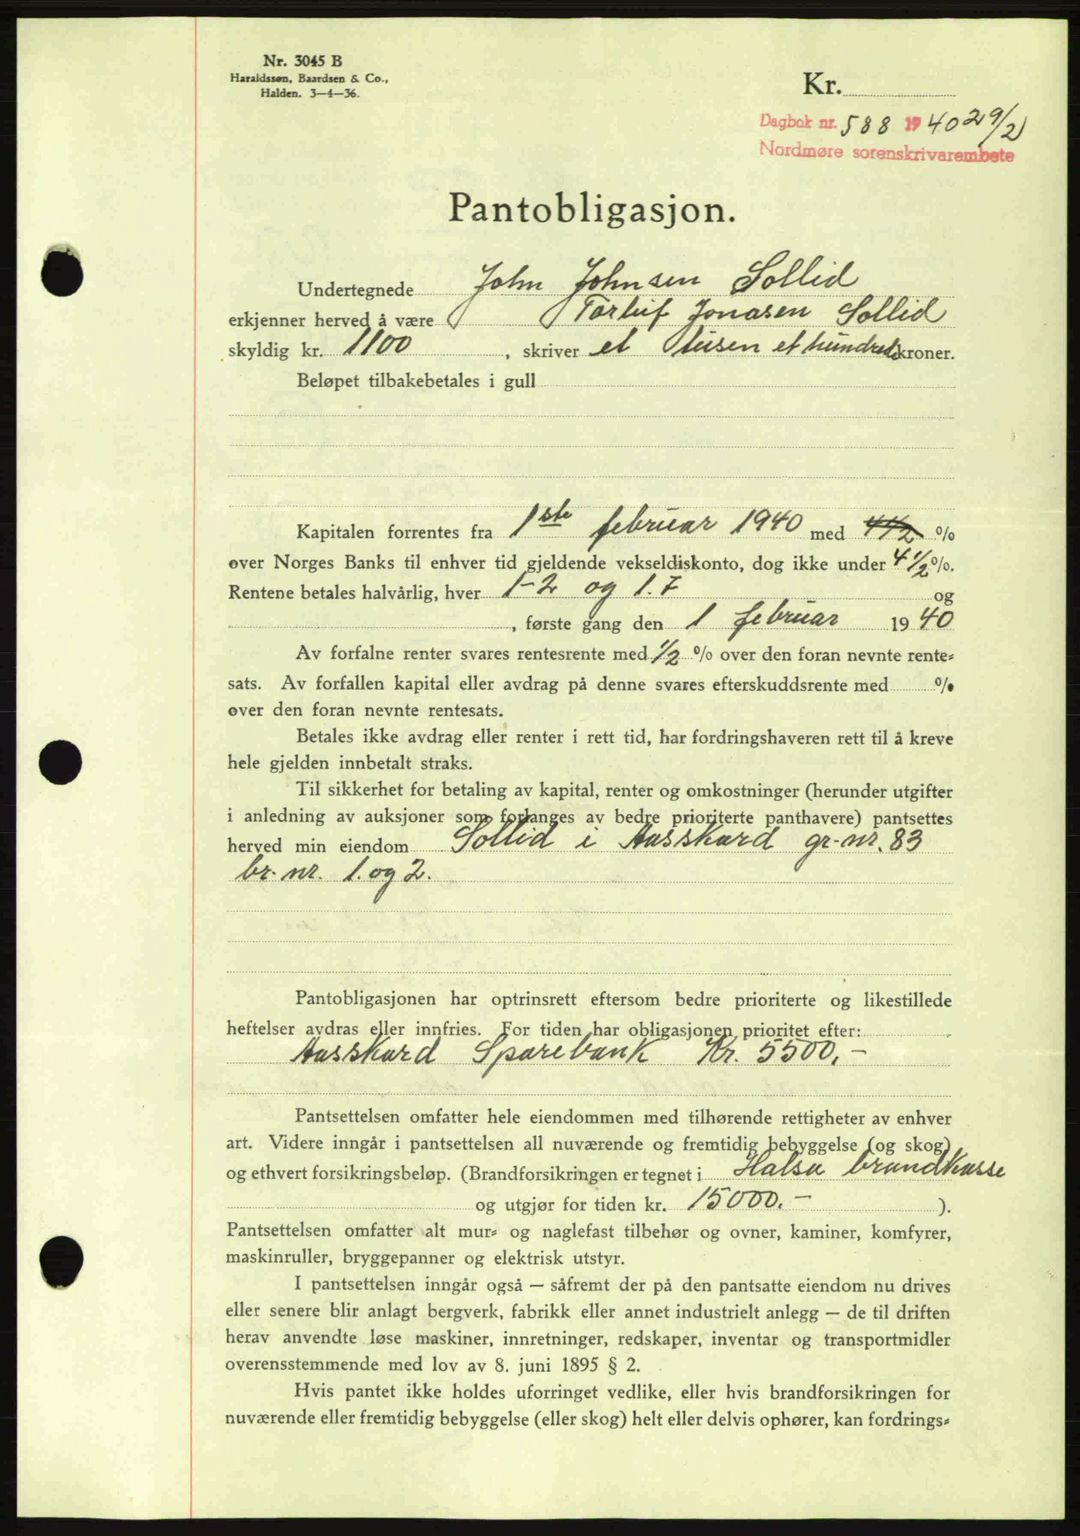 Nr. 3045 B
Haraldssøn, Baardsen & Co.,
Halden. 3—4—36.
Kr.
Dagbok nr. 588 1940 29/2
Nordmøre sorenskrivarembete
Pantobligasjon.
Undertegnede John Johnsen Sollid
erkjenner herved å være Torleif Jonasen Sollid
skyldig kr. 1100, skriver et tusen et hundrede kroner.
Beløpet tilbakebetales i gull
Kapitalen forrentes fra 1ste februar 1940 med 4 1/2 %
over Norges Banks til enhver tid gjeldende vekseldiskonto, dog ikke under 4 1/2 %.
Rentene betales halvårlig, hver 1-2 og 1.7 og
, første gang den 1 februar 1940
Av forfalne renter svares rentesrente med 1/2 % over den foran nevnte rente-
sats. Av forfallen kapital eller avdrag på denne svares efterskuddsrente med %
over den foran nevnte rentesats.
Betales ikke avdrag eller renter i rett tid, har fordringshaveren rett til å kreve
hele gjelden innbetalt straks.
Til sikkerhet for betaling av kapital, renter og omkostninger (herunder utgifter
i anledning av auksjoner som forlanges av bedre prioriterte panthavere) pantsettes
herved min eiendom Sollid i Aasskard gr-nr. 83
br-nr. 1. og 2.
Pantobligasjonen har optrinsrett eftersom bedre prioriterte og likestillede
heftelser avdras eller innfries. For tiden har obligasjonen prioritet efter:
Aasskard Sparebank Kr. 5500,-
Pantsettelsen omfatter hele eiendommen med tilhørende rettigheter av enhver
art. Videre inngår i pantsettelsen all nuværende og fremtidig bebyggelse (og skog)
og ethvert forsikringsbeløp. (Brandforsikringen er tegnet i Halsa brandkasse
og utgjør for tiden kr. 15000.- ).
Pantsettelsen omfatter alt mur- og naglefast tilbehør og ovner, kaminer, komfyrer,
maskinruller, bryggepanner og elektrisk utstyr.
I pantsettelsen inngår også — såfremt der på den pantsatte eiendom nu drives
eller senere blir anlagt bergverk, fabrikk eller annet industrielt anlegg — de til driften
herav anvendte løse maskiner, innretninger, redskaper, inventar og transportmidler
overensstemmende med lov av 8. juni 1895 § 2.
Hvis pantet ikke holdes uforringet vedlike, eller hvis brandforsikringen for
nuværende eller fremtidig bebyggelse (eller skog) helt eller delvis ophører, kan fordrings-